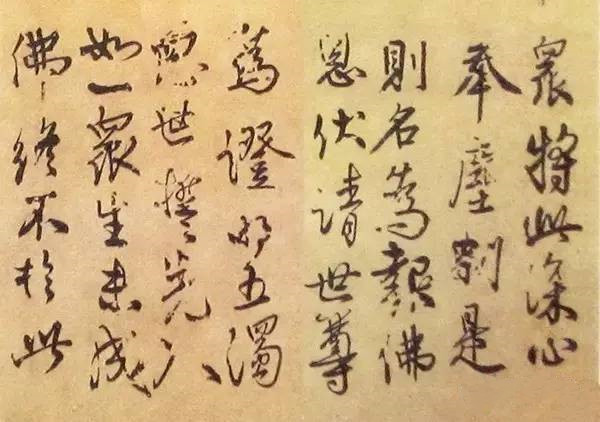 衆將此深心
奉塵刹是
則名爲報佛
恩伏請世尊
爲證明五濁
惡世誓先入
如一衆生未成
佛終不於此